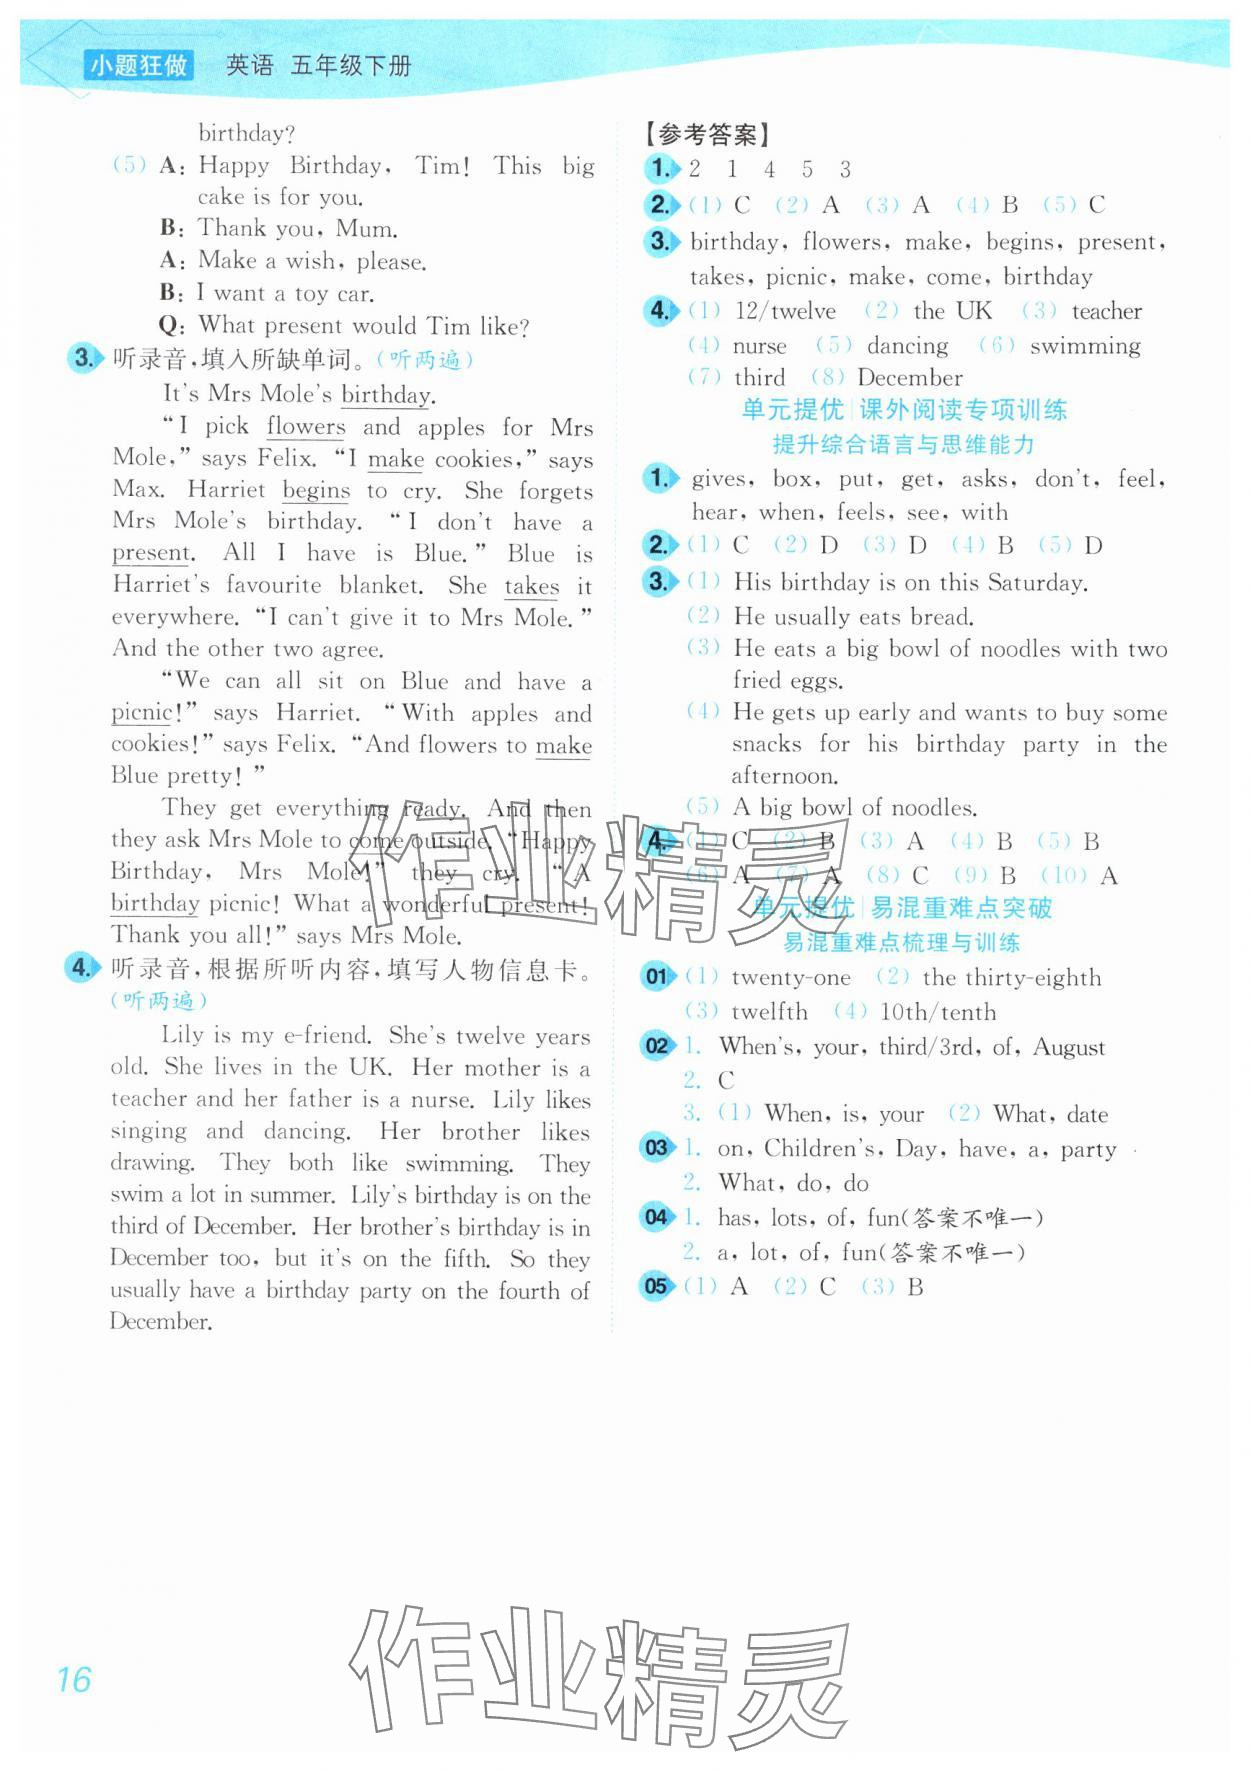 小题狂做 英语 五年级下册
birthday?
(5) A: Happy Birthday, Tim! This big
cake is for you.
B: Thank you, Mum.
A: Make a wish, please.
B: I want a toy car.
Q: What present would Tim like?
3. 听录音,填入所缺单词。(听两遍)
It's Mrs Mole's birthday.
“I pick flowers and apples for Mrs
Mole,” says Felix. “I make cookies,” says
Max. Harriet begins to cry. She forgets
Mrs Mole's birthday. “I don't have a
present. All I have is Blue.” Blue is
Harriet's favourite blanket. She takes it
everywhere. “I can't give it to Mrs Mole.”
And the other two agree.
“We can all sit on Blue and have a
picnic!” says Harriet. “With apples and
cookies!” says Felix. “And flowers to make
Blue pretty!”
They get everything ready. And then
they ask Mrs Mole to come outside. “Happy
Birthday, Mrs Mole!” they cry. “A
birthday picnic! What a wonderful present!
Thank you all!” says Mrs Mole.
4. 听录音,根据所听内容,填写人物信息卡。
(听两遍)
Lily is my e-friend. She's twelve years
old. She lives in the UK. Her mother is a
teacher and her father is a nurse. Lily likes
singing and dancing. Her brother likes
drawing. They both like swimming. They
swim a lot in summer. Lily's birthday is on the
third of December. Her brother's birthday is in
December too, but it's on the fifth. So they
usually have a birthday party on the fourth of
December.
【参考答案】
1. 2 1 4 5 3
2. (1) C (2) A (3) A (4) B (5) C
3. birthday, flowers, make, begins, present,
takes, picnic, make, come, birthday
4. (1) 12/twelve (2) the UK (3) teacher
(4) nurse (5) dancing (6) swimming
(7) third (8) December
单元提优|课外阅读专项训练
提升综合语言与思维能力
1. gives, box, put, get, asks, don't, feel,
hear, when, feels, see, with
2. (1) C (2) D (3) D (4) B (5) D
3. (1) His birthday is on this Saturday.
(2) He usually eats bread.
(3) He eats a big bowl of noodles with two
fried eggs.
(4) He gets up early and wants to buy some
snacks for his birthday party in the
afternoon.
(5) A big bowl of noodles.
4. (1) C (2) B (3) A (4) B (5) B
(6) A (7) A (8) C (9) B (10) A
单元提优|易混重难点突破
易混重难点梳理与训练
01 (1) twenty-one (2) the thirty-eighth
(3) twelfth (4) 10th/tenth
02 1. When's, your, third/3rd, of, August
2. C
3. (1) When, is, your (2) What, date
03 1. on, Children's, Day, have, a, party
2. What, do, do
04 1. has, lots, of, fun(答案不唯一)
2. a, lot, of, fun(答案不唯一)
05 (1) A (2) C (3) B
作业精灵
作业精灵
16